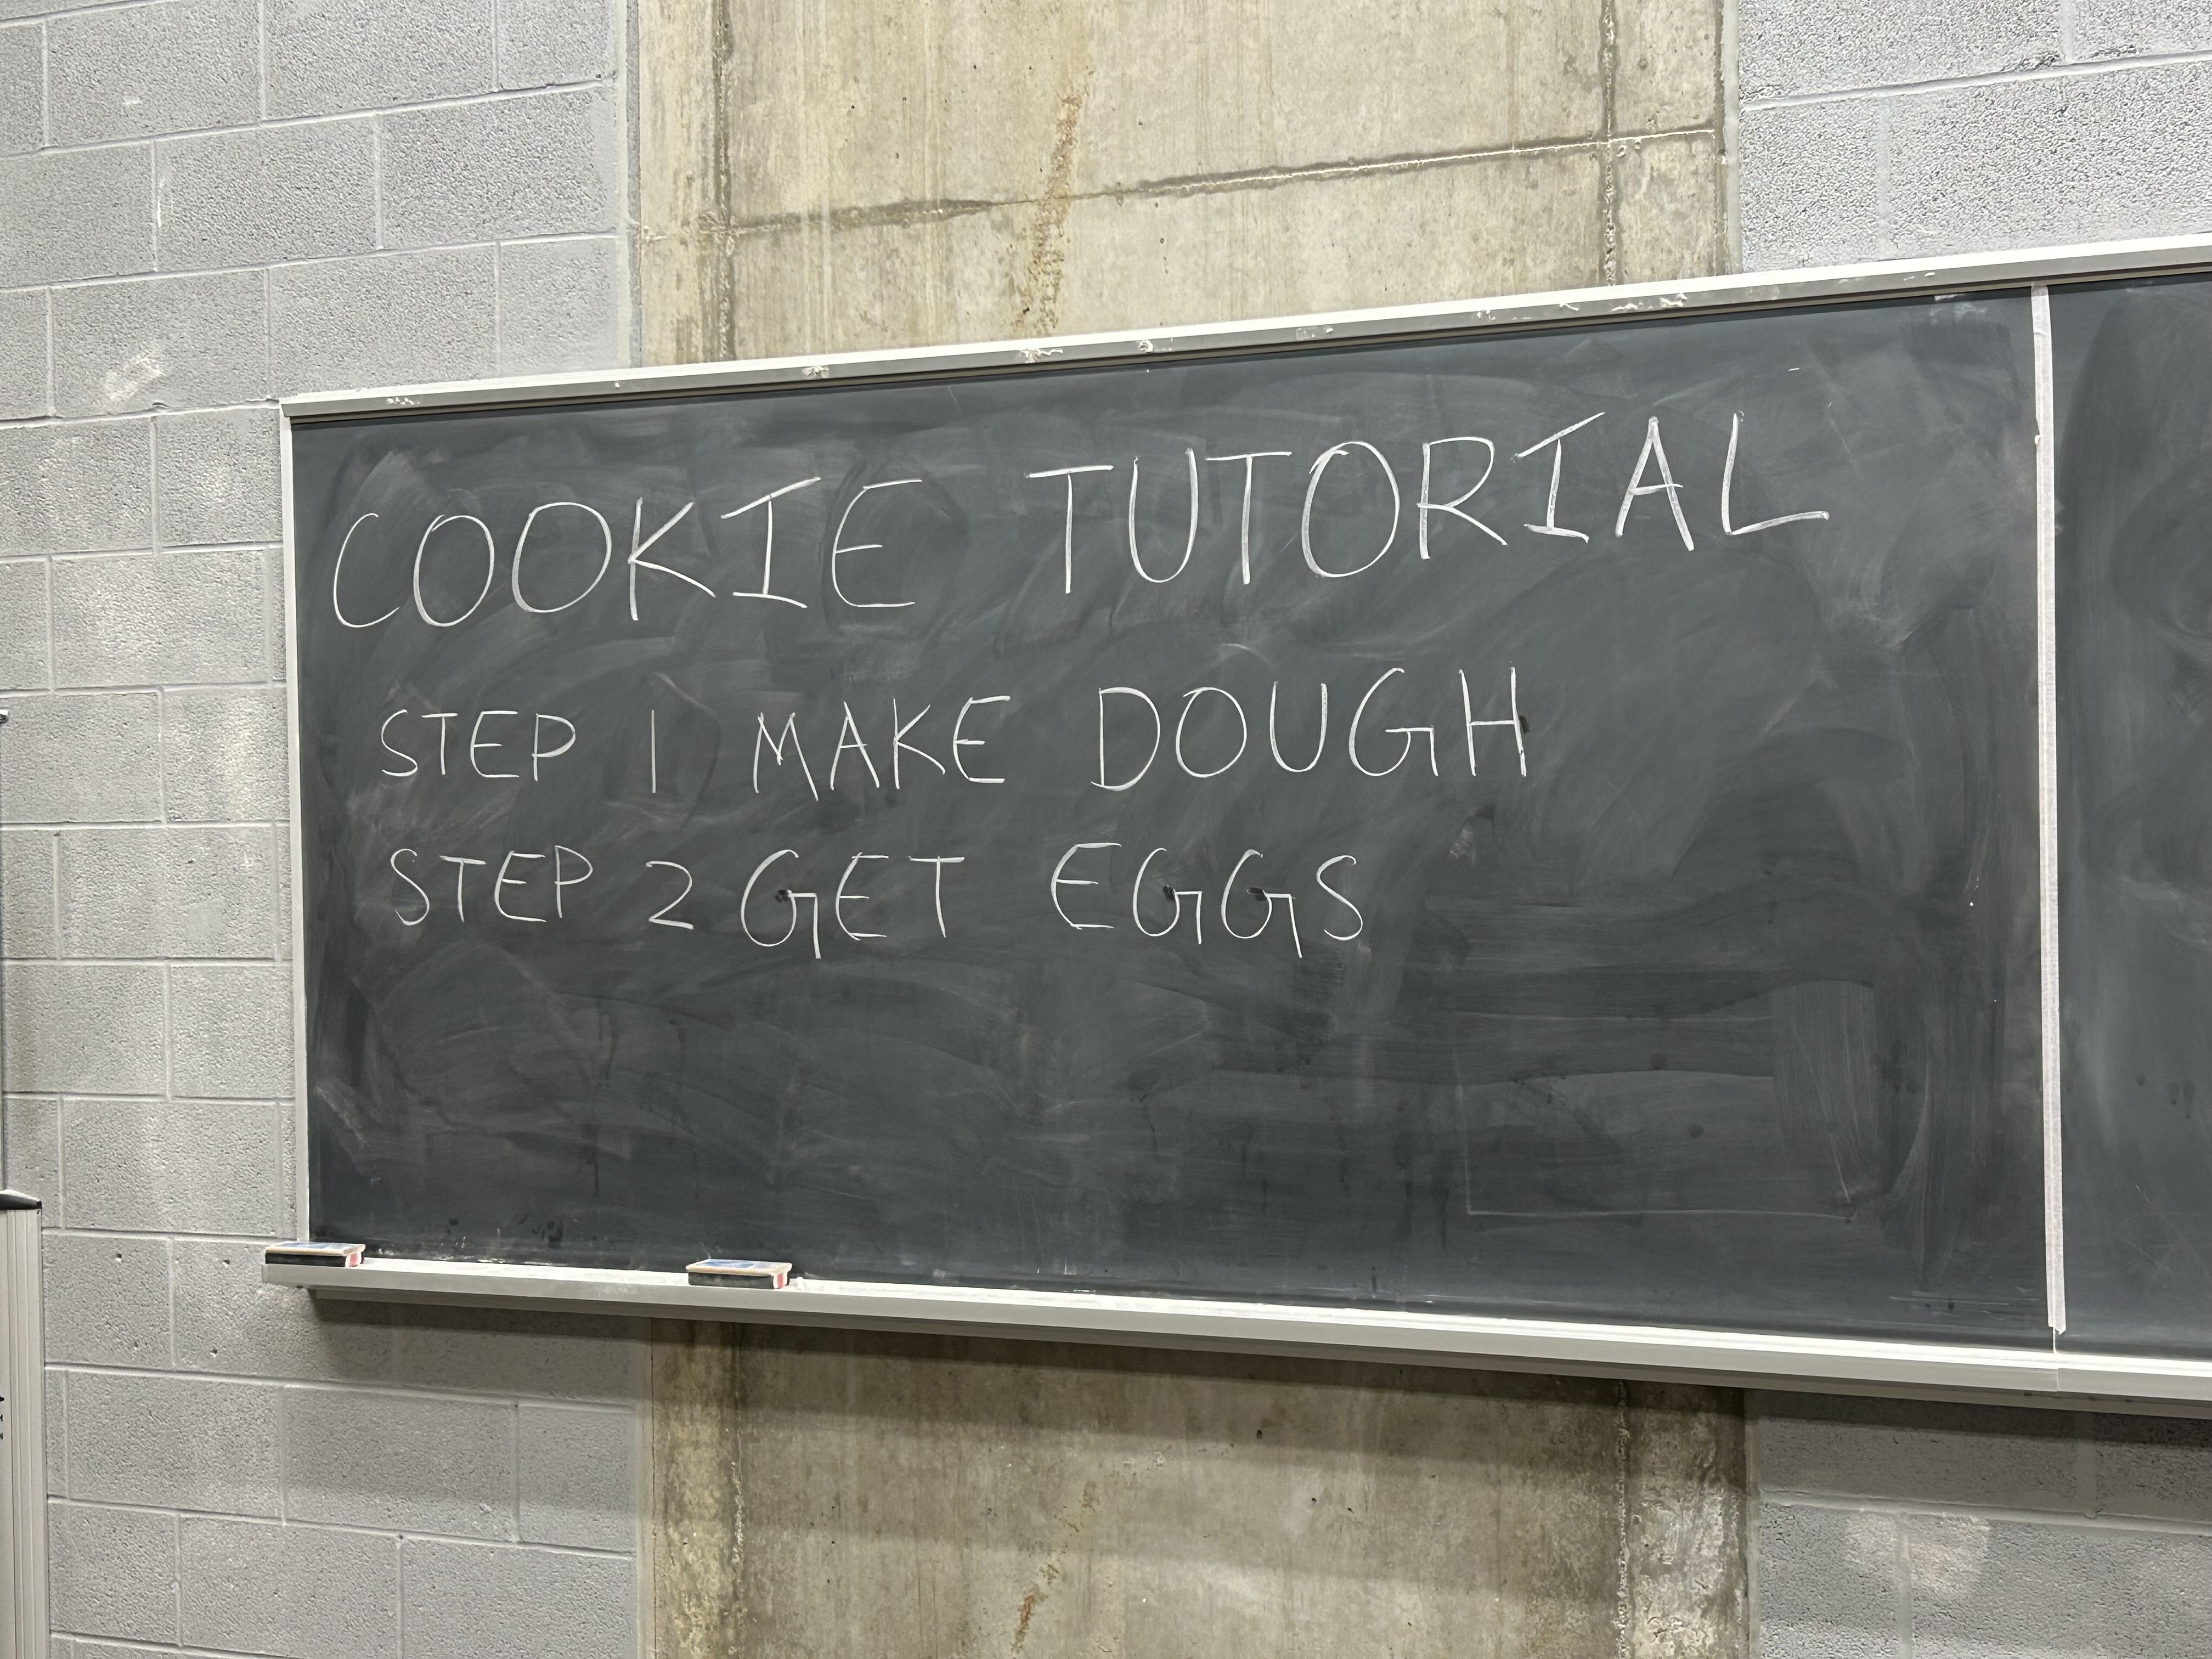 COOKIE TUTORIAL
STEP 1 MAKE DOUGH
STEP 2 GET EGGS